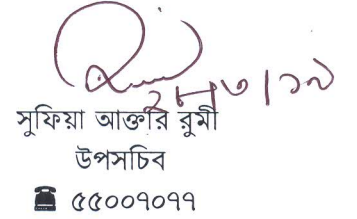 ২৮/৩/১৯
সুফিয়া আক্তার রুমী
উপসচিব
☎ ৫৫০০৭০৭৭